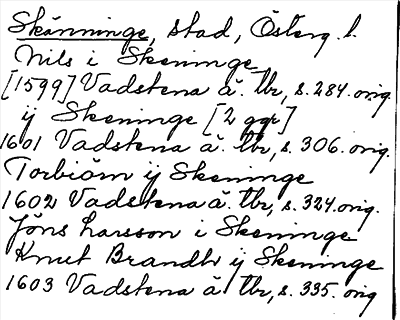 Skänninge, stad, Österg. l.
Nils i Skeninge
[1599] Vadstena ä. tbr, s. 284. orig.
ij Skeninge [2 ggr]
1601 Vadstena ä. tbr, s. 306. orig.
Torbiöm ij Skeninge
1602 Vadstena ä. tbr, s. 324. orig.
Jöns Larsson i Skeninge
Knut Brandh ij Skeninge
1603 Vadstena ä tbr, s. 335. orig